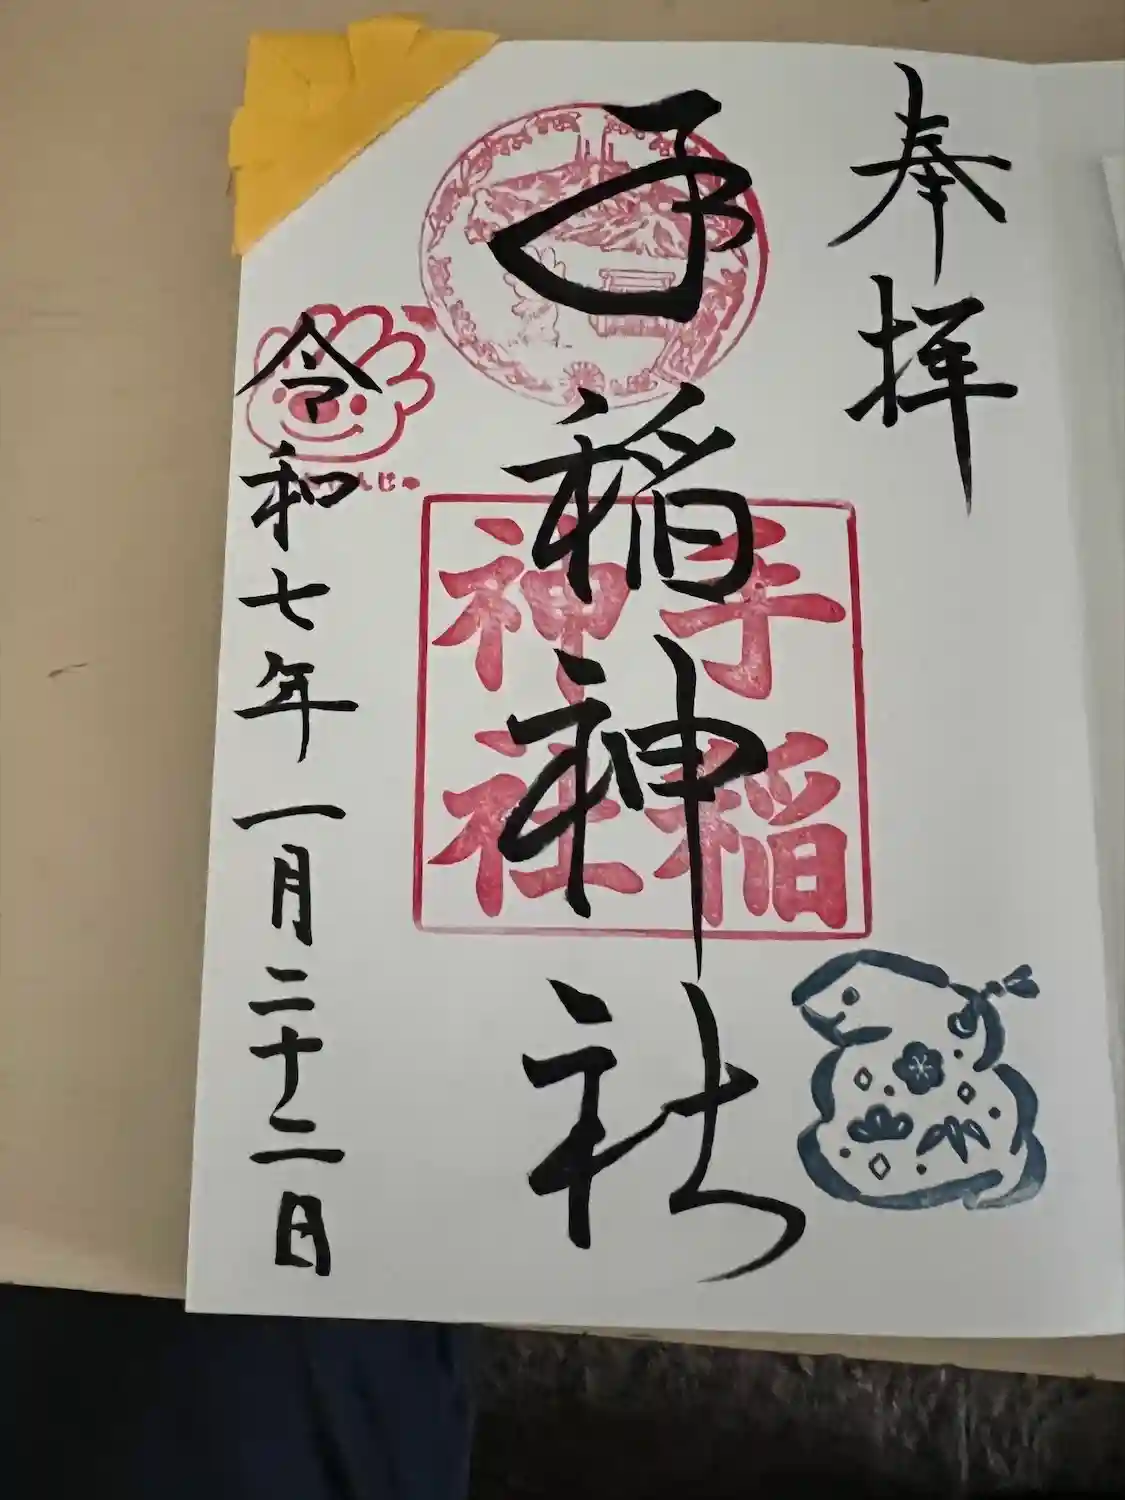 奉拝
手稲神社
手稲神社
令和七年一月二十二日